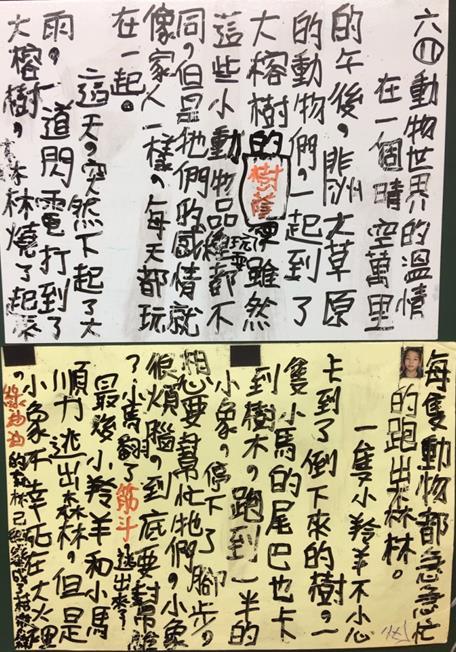 六⑪動物世界的溫情
在一個晴空萬里
的午後，非洲大草原
的動物們，一起到了
大榕樹的樹蔭玩耍雖然
這些小動物品種都不
同，但是牠們的感情就
像家人一樣，每天都玩
在一起。
這天，突然下起了大
雨，一道閃電打到了
大榕樹，林燒了起來
每隻動物都急急忙
的跑出森林。
一隻小羚羊不小心
卡到了倒下來的樹，一
隻小馬的尾巴也卡
到樹木，跑到一半的
小象，停下了腳步，
想要幫忙牠們，小象
很煩腦，到底要幫誰
？小馬翻了筋斗逃出來了
最後小羚羊和小馬
順力逃出森林，但是
小象不幸死在大火裡
，的森林已